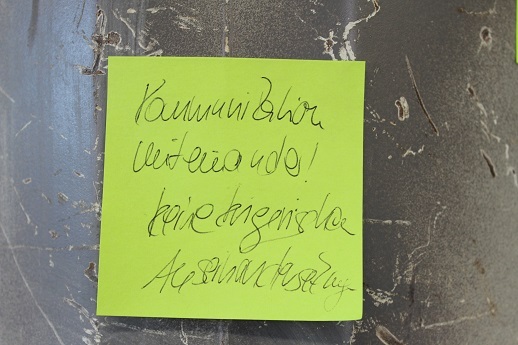 Kommunikation
miteinander!
keine kriegerischen
Auseinandersetzungen